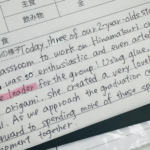 主食
飲み物
の様子 Today, three of our 2-year-olds sta
assroom to work on Himamatsuri c
was so enthusiastic and even acted
e leader for the group! Using glue,
origami, she created a very lovel
l. As we approach the graduation ce
ward to spending more of these sp
moment together.